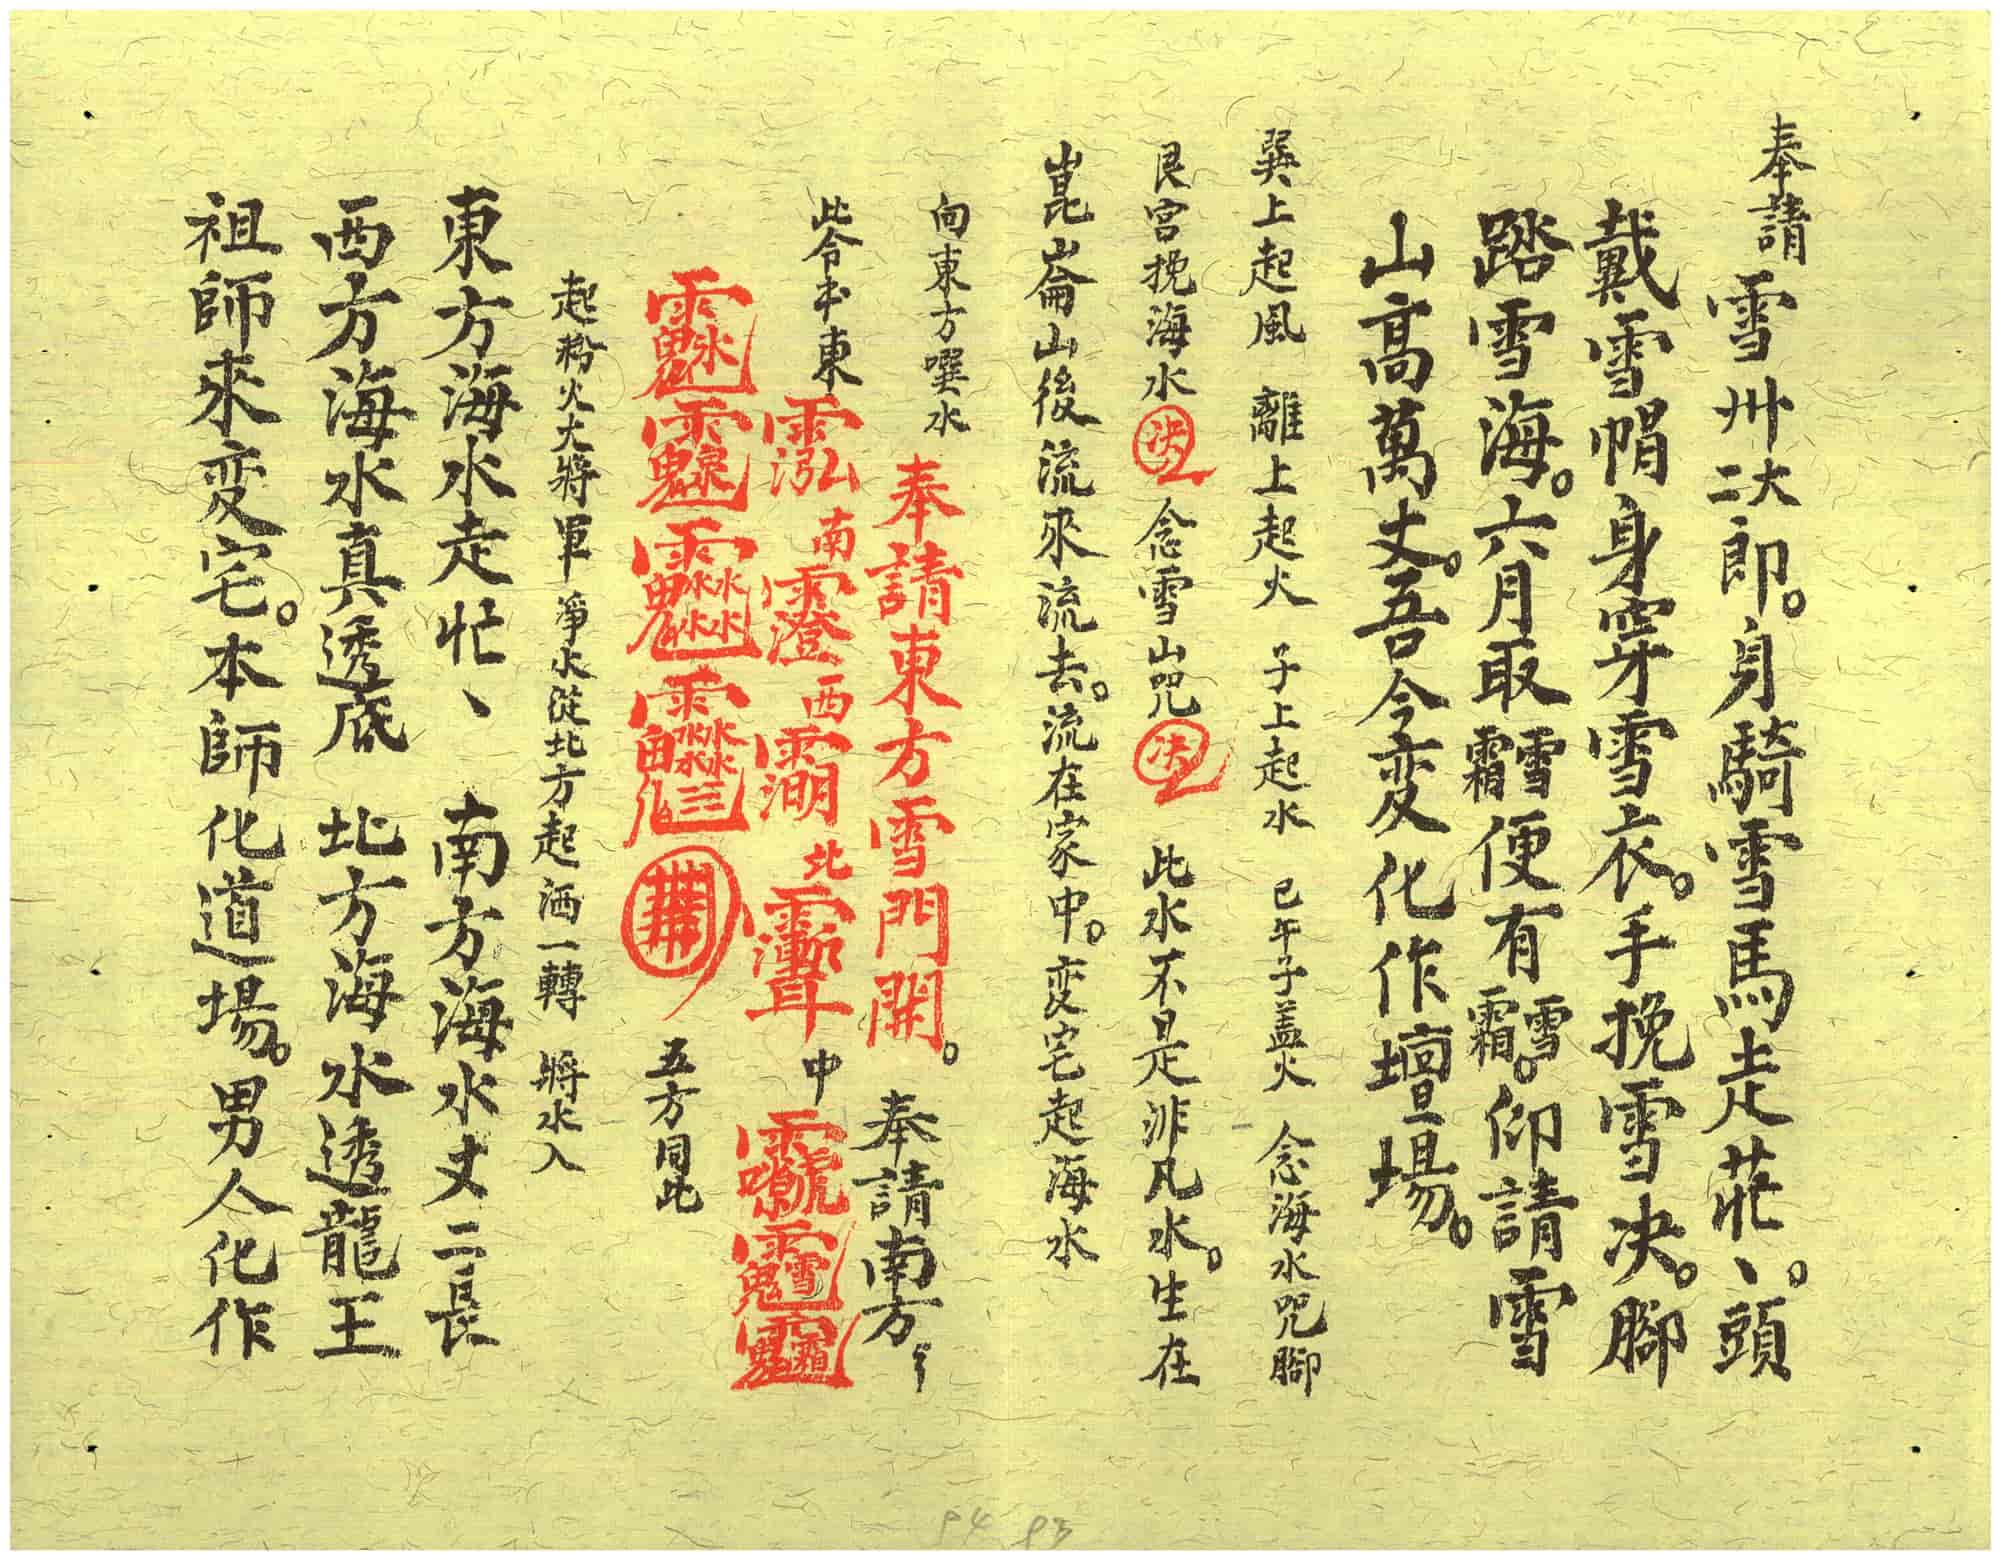 奉請 雪卅二大郎。身騎雪馬走茫、。頭
戴雪帽身穿雪衣。手挽雪决。腳
踏雪海。六月取霜雪便有霜雪。仰請雪
山高萬丈。吾今变化作壇場。
巽上起風 離上起火 子上起水 巳午子盖火 念海水咒腳
艮宮挽海水 决 念雪山咒 决 此水不是非凡水。生在
崑崙山後流來流去。流在家中。变宅起海水
向東方噀水 奉請東方雪門開。 奉請南方
此令书東 泓 南 澄 西 北 中
五方同此
起粉火大將軍 淨水從北方起洒一轉 將水入
東方海水走忙、 南方海水丈二長
西方海水真透底 北方海水透龍王
祖師來变宅。本師化道場。男人化作
94 93